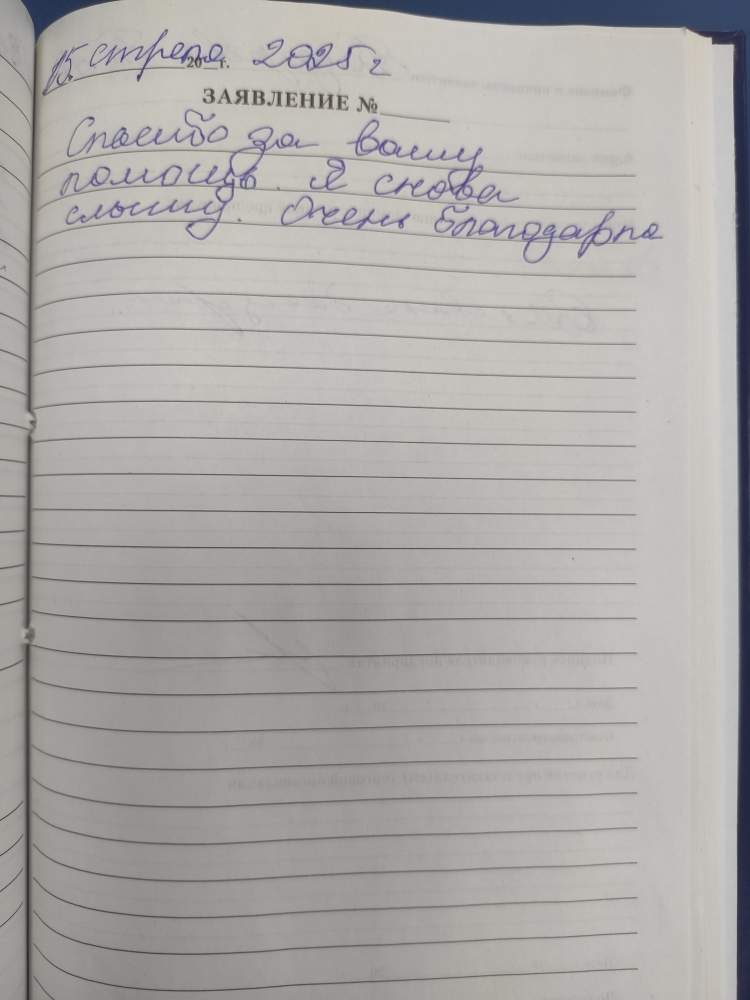 15. апреля 2025 г
20 г.
ЗАЯВЛЕНИЕ №
Спасибо за вашу
помощь. Я снова
слышу. Очень благодарна